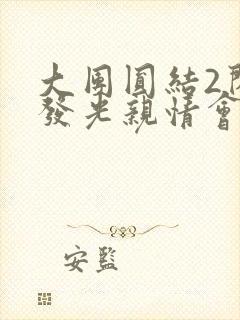 大圓結2
發光親情會
安監